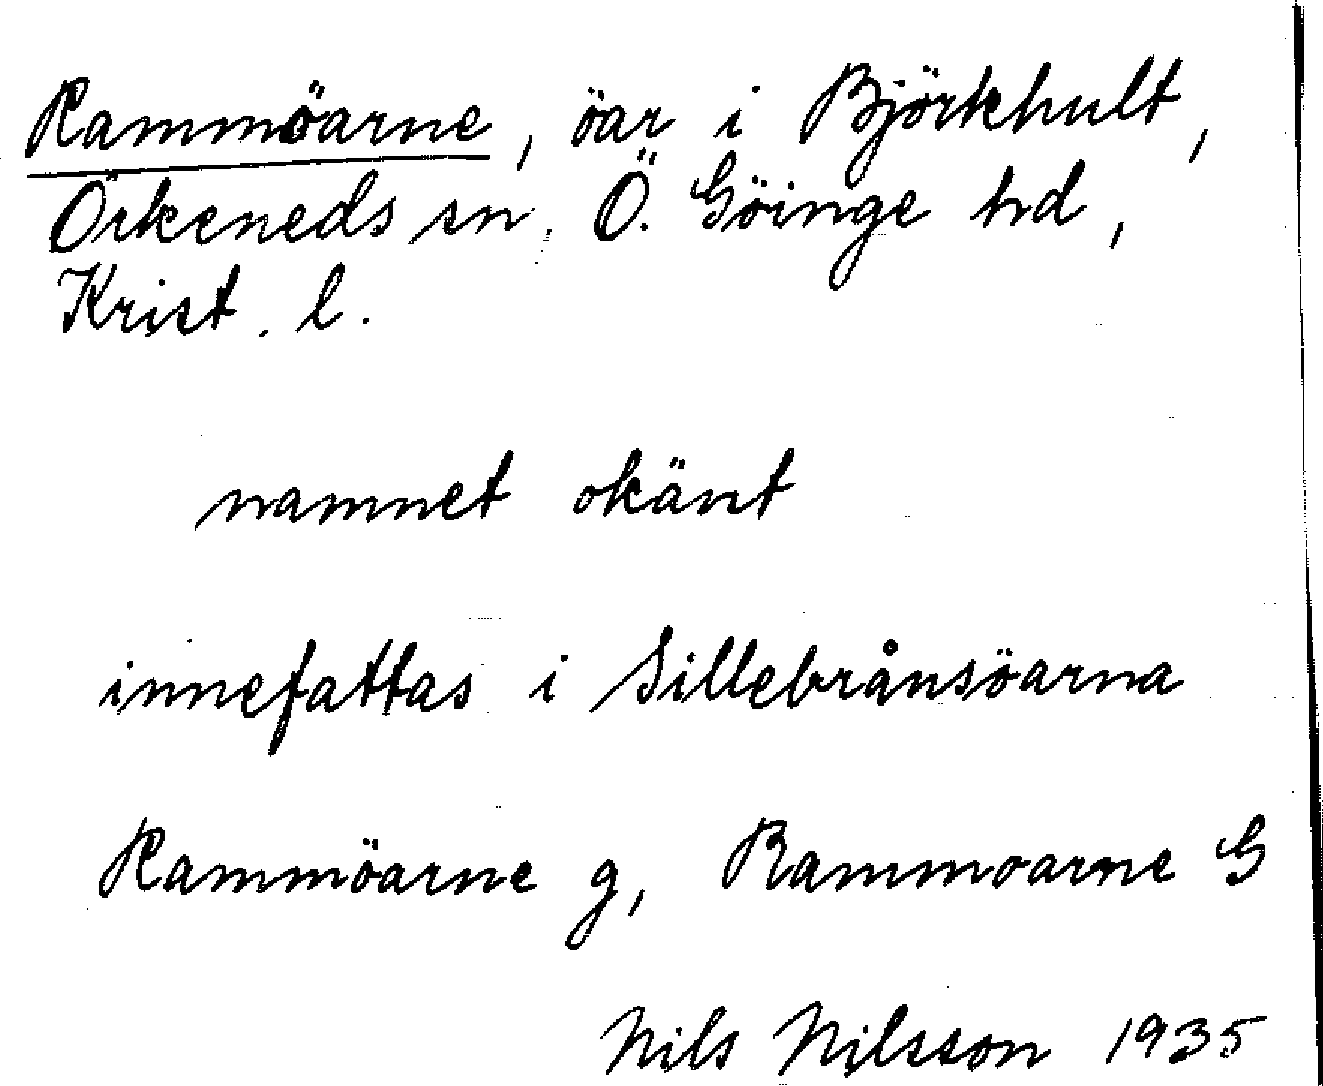 Rammöarne, öar i Björkhult,
Örkeneds sn, Ö. Göinge hd,
Krist. l.
namnet okänt
innefattas i Sillebrånsöarna
Rammöarne g, Rammoarne G
Nils Nilsson 1935